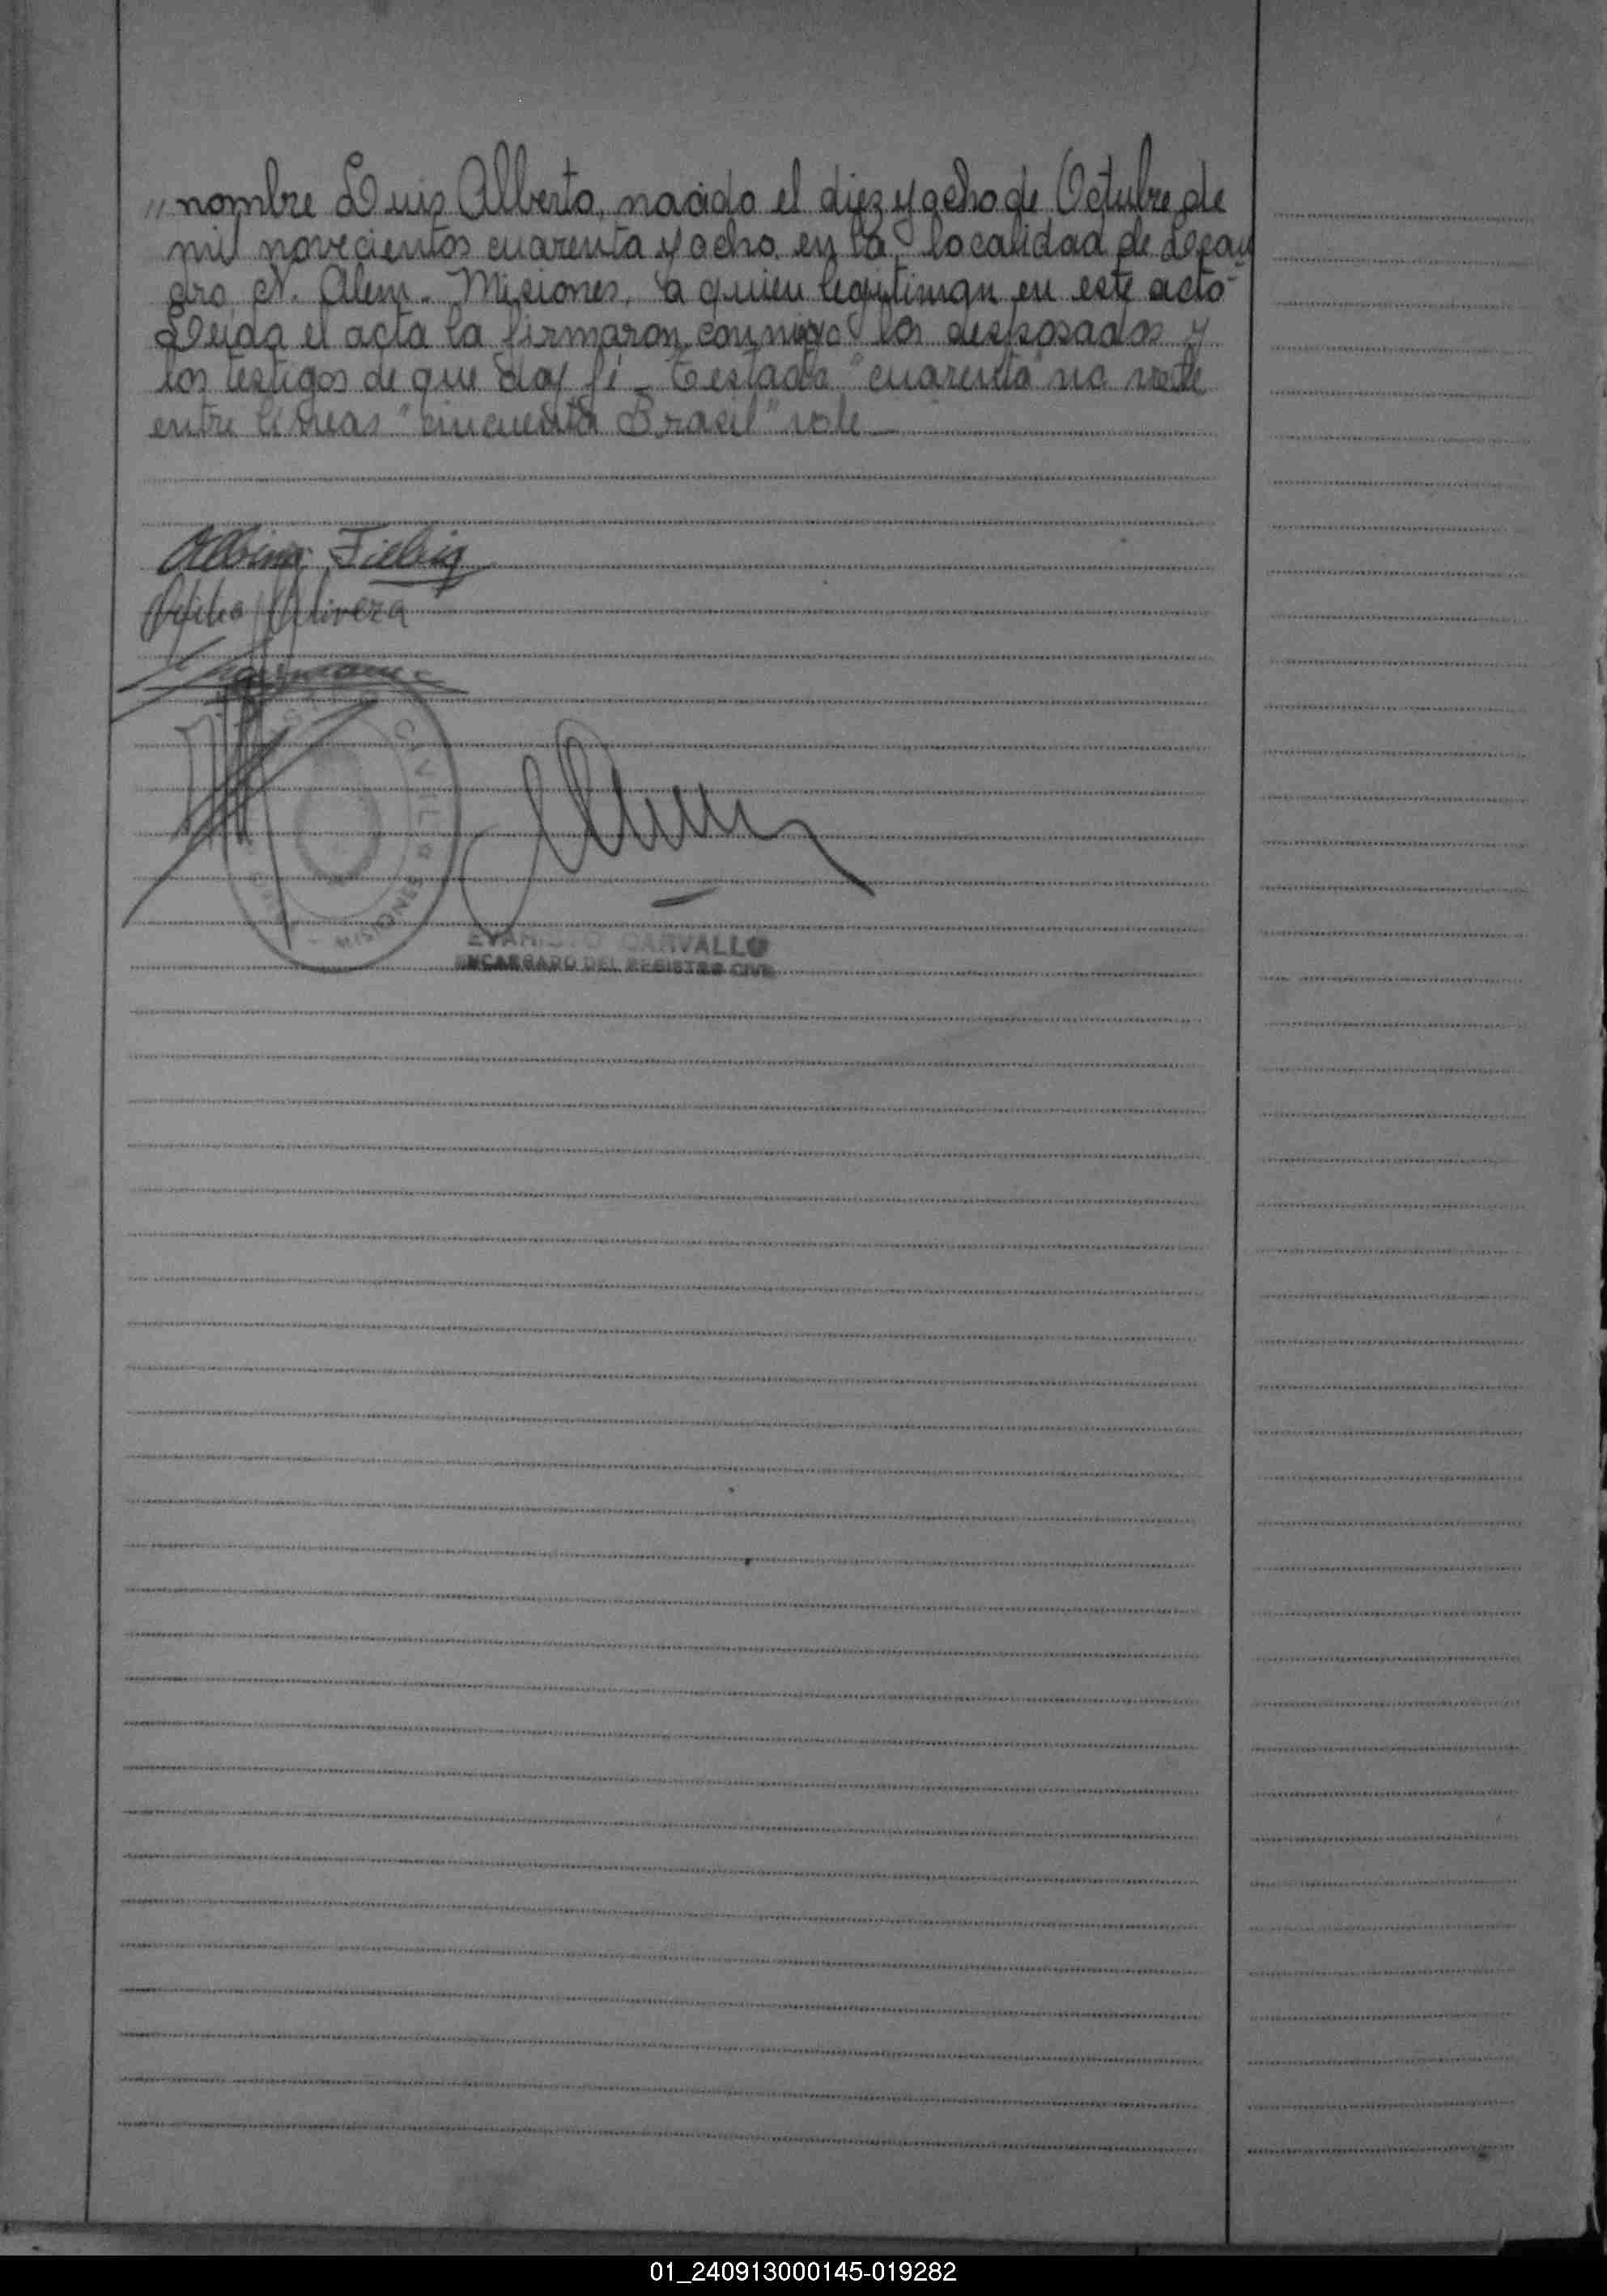 " nombre Luis Alberto, nacido el diez y ocho de Octubre de
mil novecientos cuarenta y ocho, en la localidad de Lean
dro N. Alem. Misiones, a quien legitiman en este acto-
Leida el acta la firmaron conmigo los desposados y
los testigos de que doy fé_ Testado "cuarenta" no vale
entre lineas "cincuenta Brasil" vale_
Fiebig
Olivera
CIVIL
MISIONES
CARVALLO
ENCARGADO DEL REGISTRO CIVIL
01_240913000145-019282